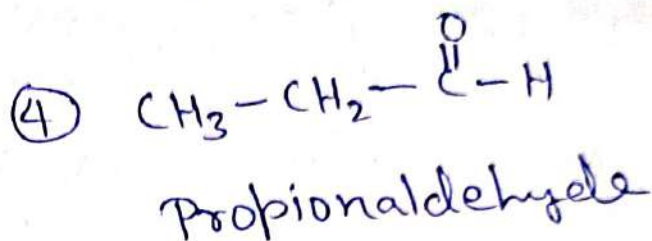 O
④ CH₃ – CH₂ – C – H
Propionaldehyde